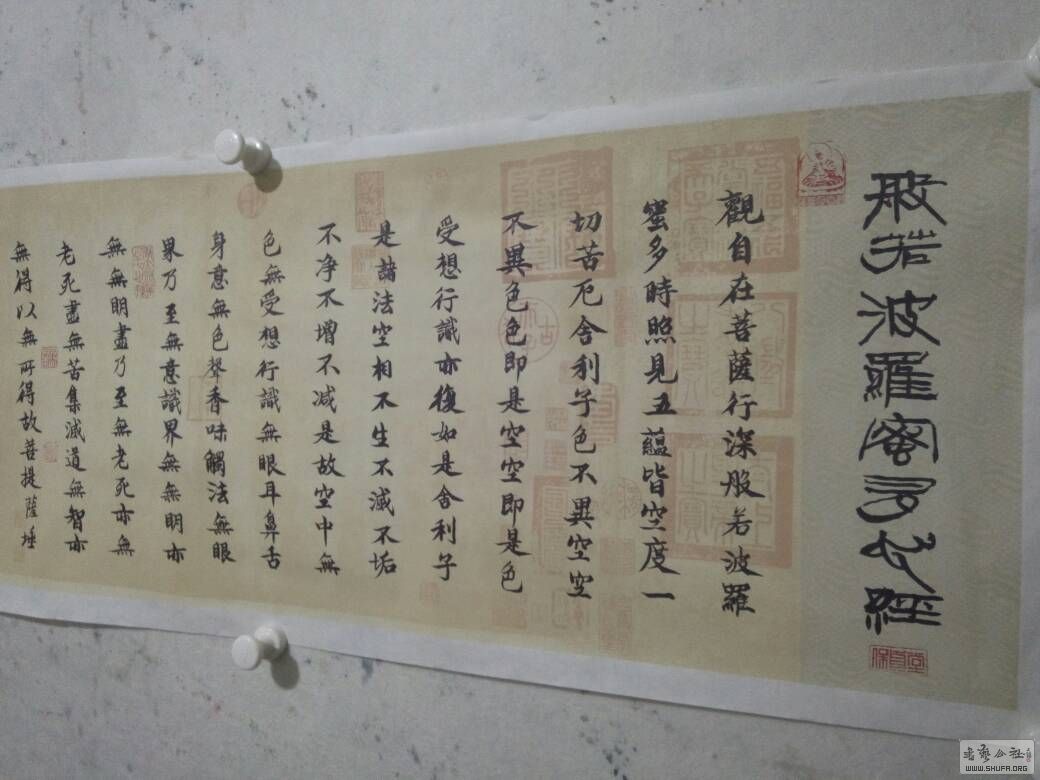 般若波羅蜜多心經
觀自在菩薩行深般若波羅
蜜多時照見五蘊皆空度一
切苦厄舍利子色不異空空
不異色色即是空空即是色
受想行識亦復如是舍利子
是諸法空相不生不滅不垢
不净不增不减是故空中無
色無受想行識無眼耳鼻舌
身意無色聲香味觸法無眼
界乃至無意識界無無明亦
無無明盡乃至無老死亦無
老死盡無苦集滅道無智亦
無得以無所得故菩提薩埵
書藝公社
WWW.SHUFA.ORG